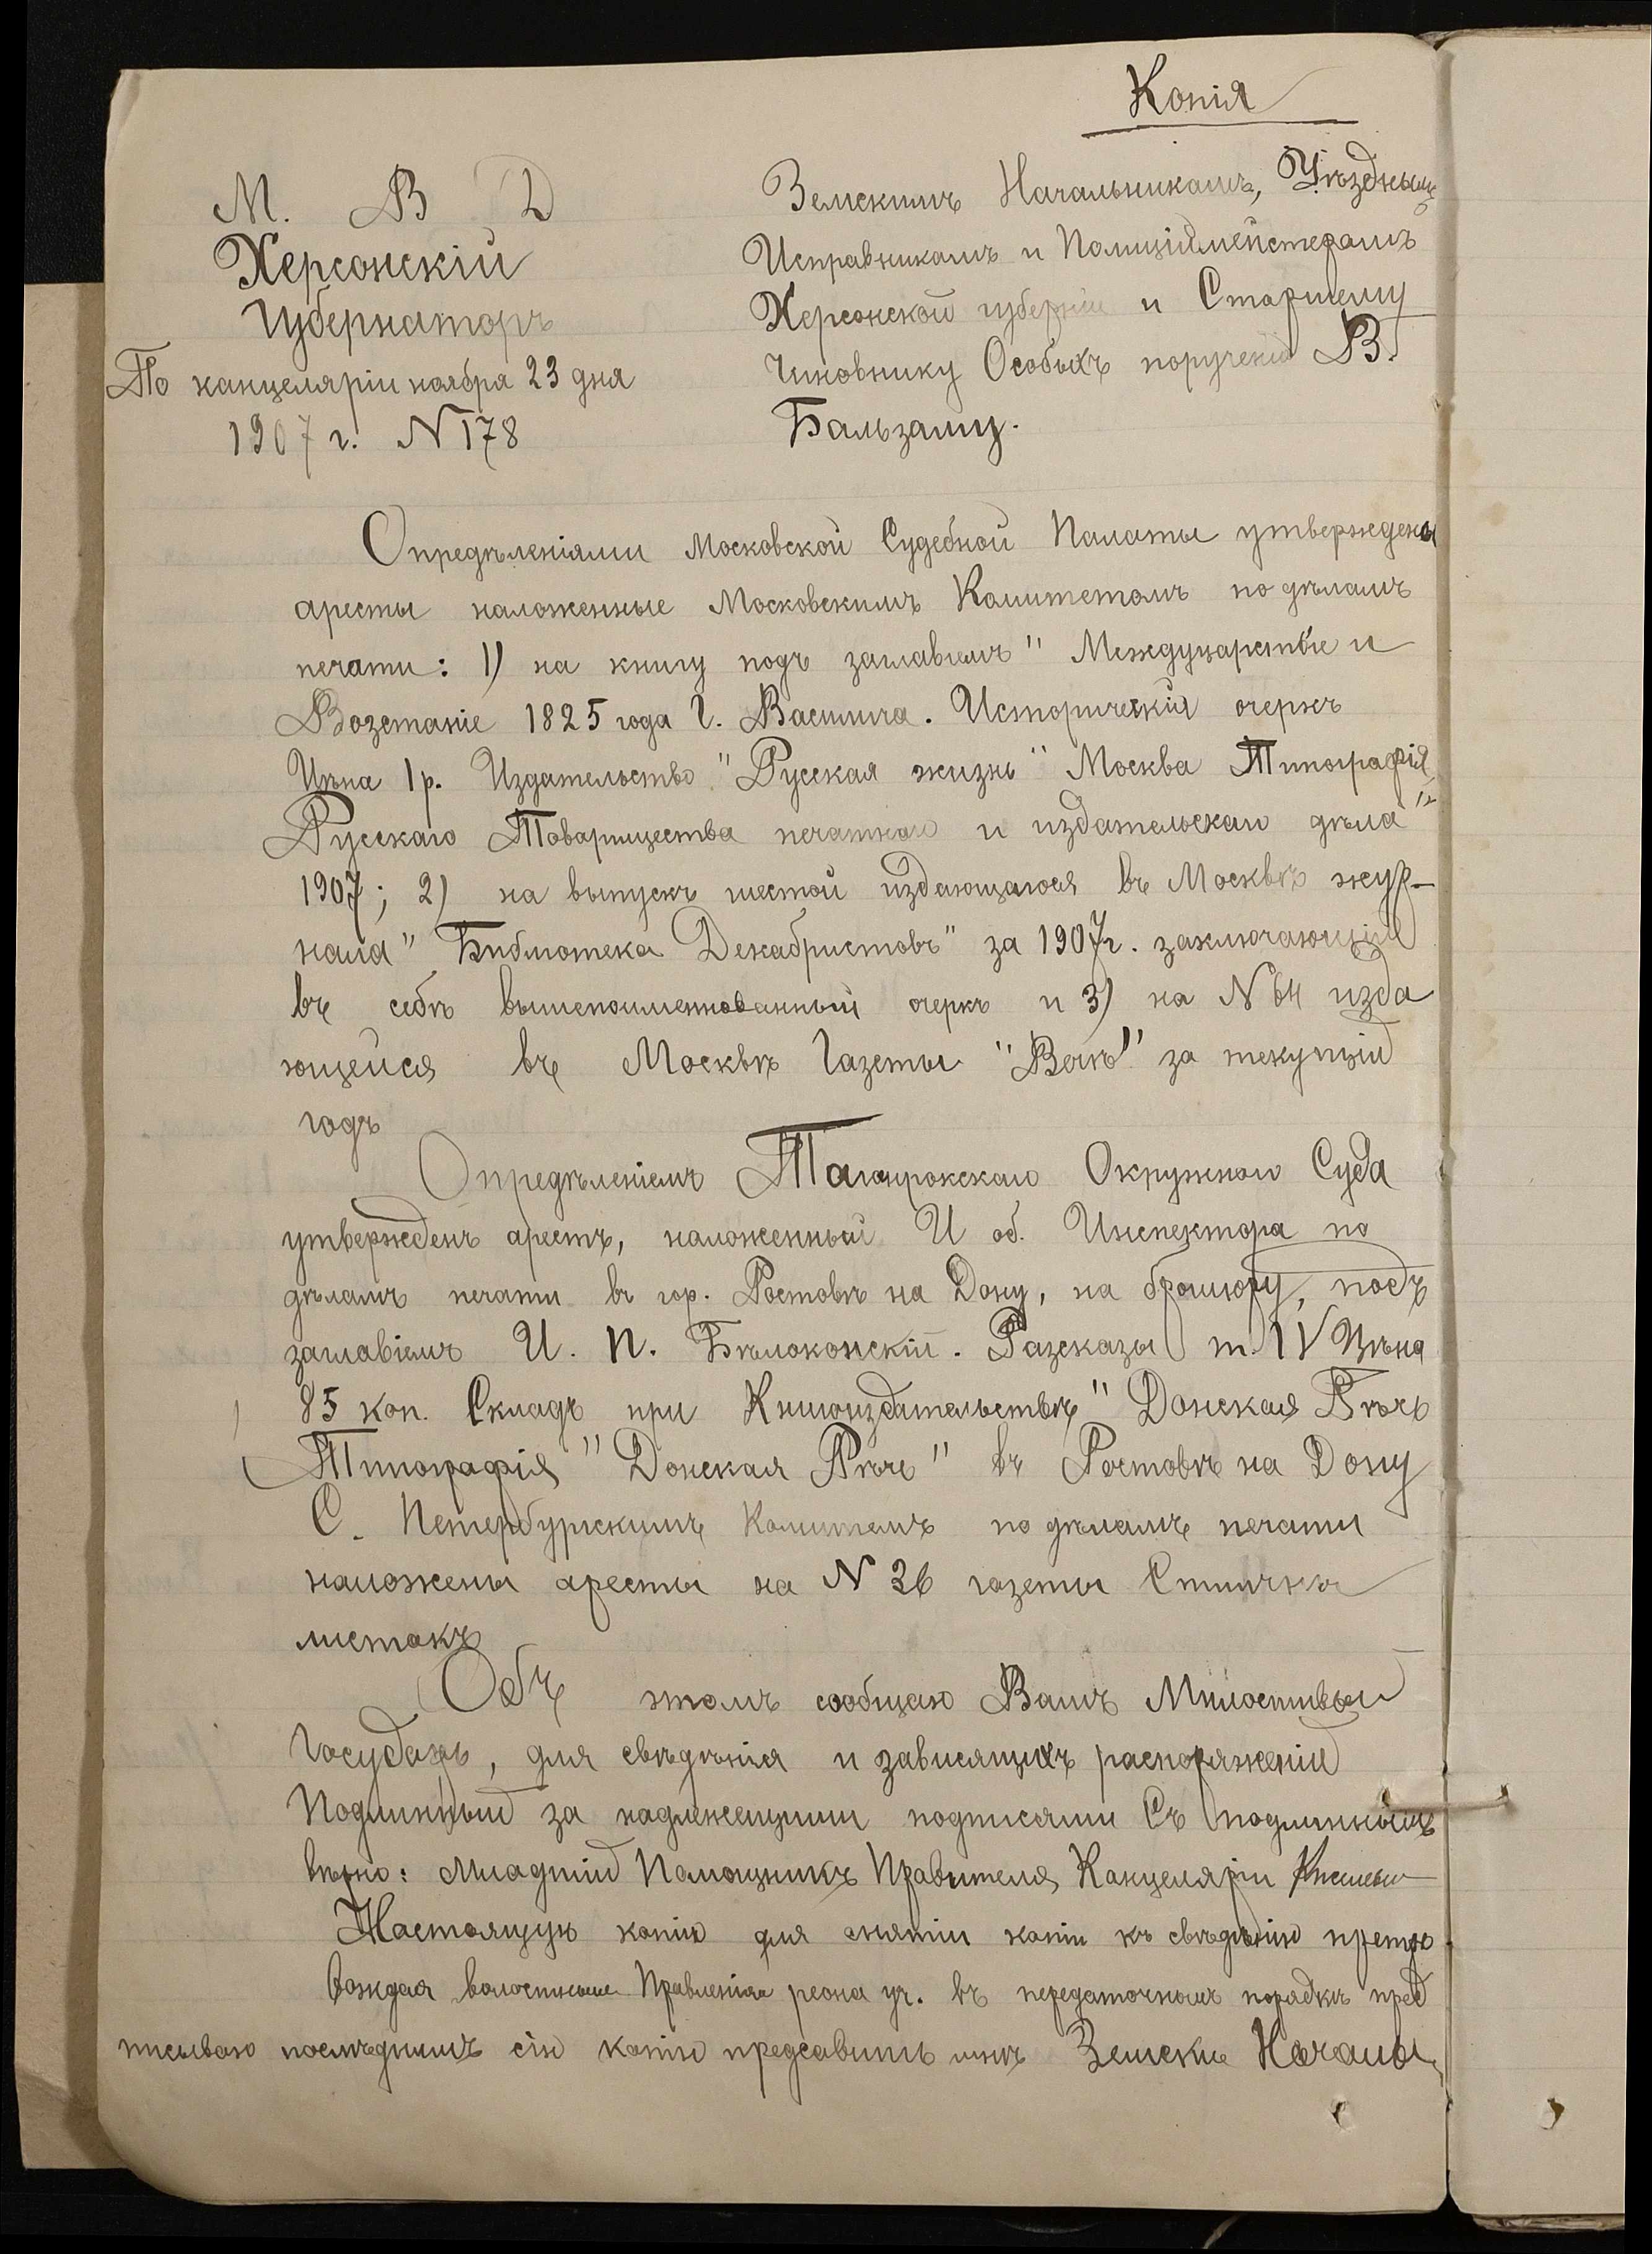 Копія
М. В Д
Херсонскій
Губернаторъ
По канцеляріи ноября 23 дня
1907 г. N 178
Земскимъ Начальникамъ, Уѣзднымъ
Исправникамъ и Полиціймейстерамъ
Херсонской губерніи и Старшему
Чиновнику Особыхъ порученій В.
Бальзаму.
Опредѣленіями Московской Судебной Палаты утверждены
аресты наложенные Московскимъ Комитетомъ по дѣламъ
печати: 1) на книгу подъ заглавіемъ " Междуцарствіе и
Возстаніе 1825 года Г. Василича. Историческій очеркъ
Цѣна 1 р. Издательство "Русская жизнь" Москва Типографія
Русскаго Товарищества печатнаго и издательскаго дѣла"
1907; 2) на выпускъ шестой издающагося въ Москвѣ жур-
нала" Библіотека Декабристовъ" за 1907г. заключающій
въ себѣ вышепоименованный очеркъ и 3) на N 64 изда
ющейся въ Москвѣ Газеты "Вѣкъ" за текущій
годъ
Опредѣленіемъ Таганрокскаго Окружнаго Суда
утвержденъ арестъ, наложенный И об. Инспектора по
дѣламъ печати въ гор. Ростовѣ на Дону, на брошюру, подъ
заглавіемъ И. П. Бѣлоконскій. Разсказы т. IV Цѣна
85 коп. Складъ при Книгоиздательствѣ "Донская Рѣчь
Типографія "Донская Рѣчь" въ Ростовѣ на Дону
С. Петербургскимъ Комитемъ по дѣламъ печати
наложены аресты на N 26 газеты
листокъ
Объ этомъ сообщаю Вамъ Милостивый
Государь, для свѣдѣнія и зависящихъ распоряженій
Подлинный за надлежащими подписями Съ подлиннымъ
вѣрно: Младшій Помощникъ Правителя Канцеляріи
Настоящую копію для снятіи копіи къ свѣдѣнію препро
вождая волостнымъ Правленіямъ реона уч. въ передаточномъ порядкѣ пред
писываю послѣднимъ сію копію предсавить мнѣ Земскій Началь